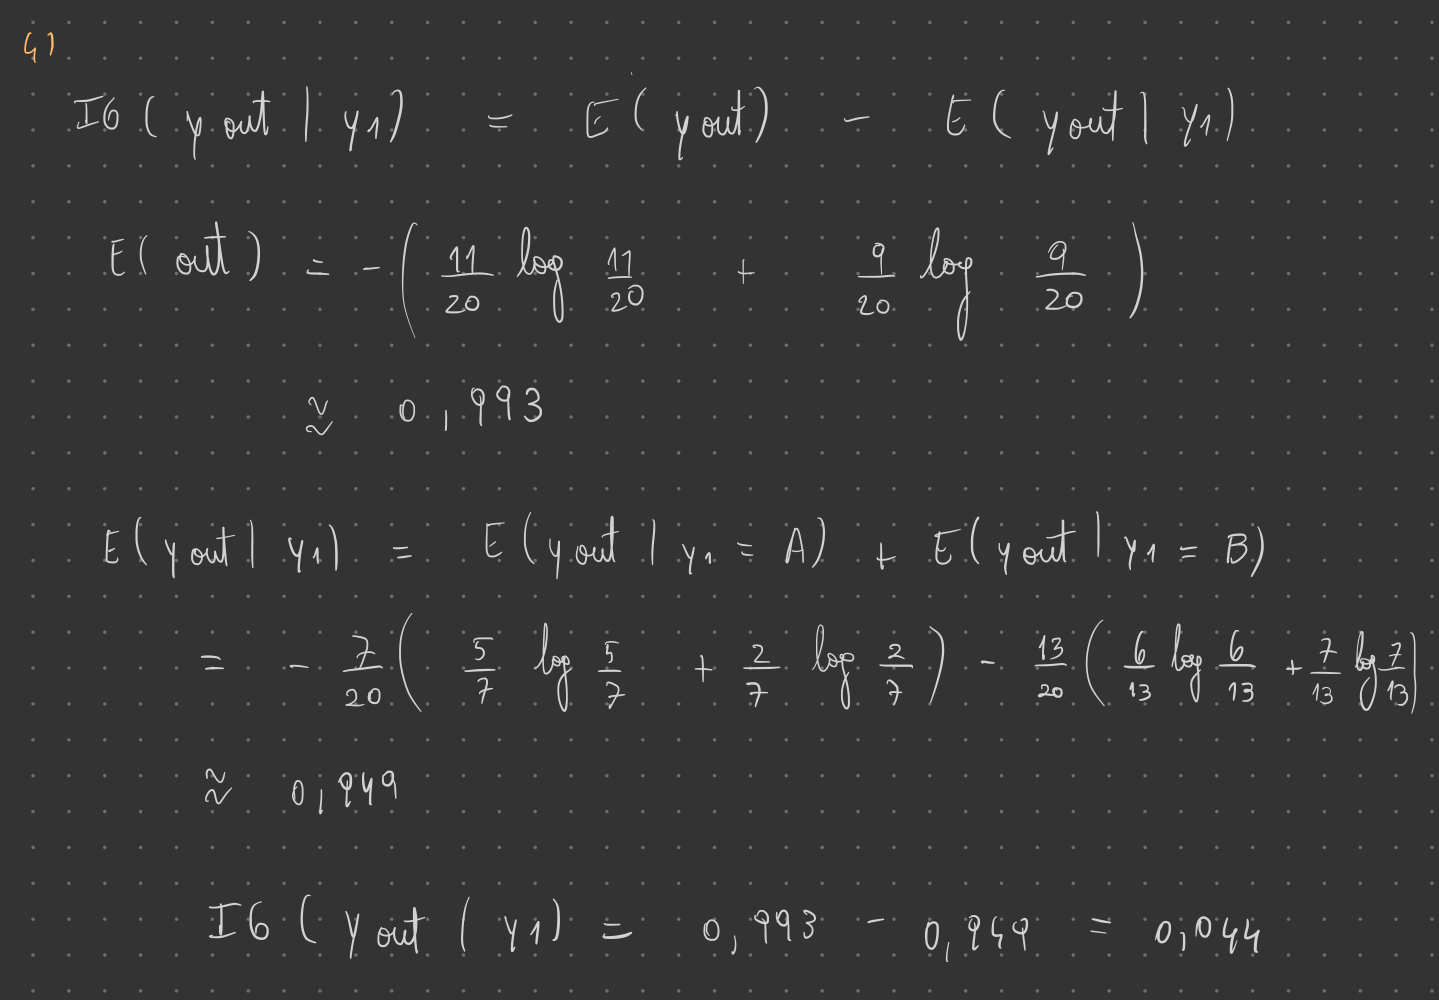 4)
IG ( y out | y1) = E ( y out) - E ( y out | y1)
E( out ) = - ( 11/20 log 11/20 + 9/20 log 9/20 )
≈ 0,993
E( y out | y1) = E ( y out | y1 = A) + E( y out | y1 = B)
= - 7/20 ( 5/7 log 5/7 + 2/7 log 2/7 ) - 13/20 ( 6/13 log 6/13 + 7/13 log 7/13 )
≈ 0,949
IG ( y out | y1) = 0,993 - 0,949 = 0,044